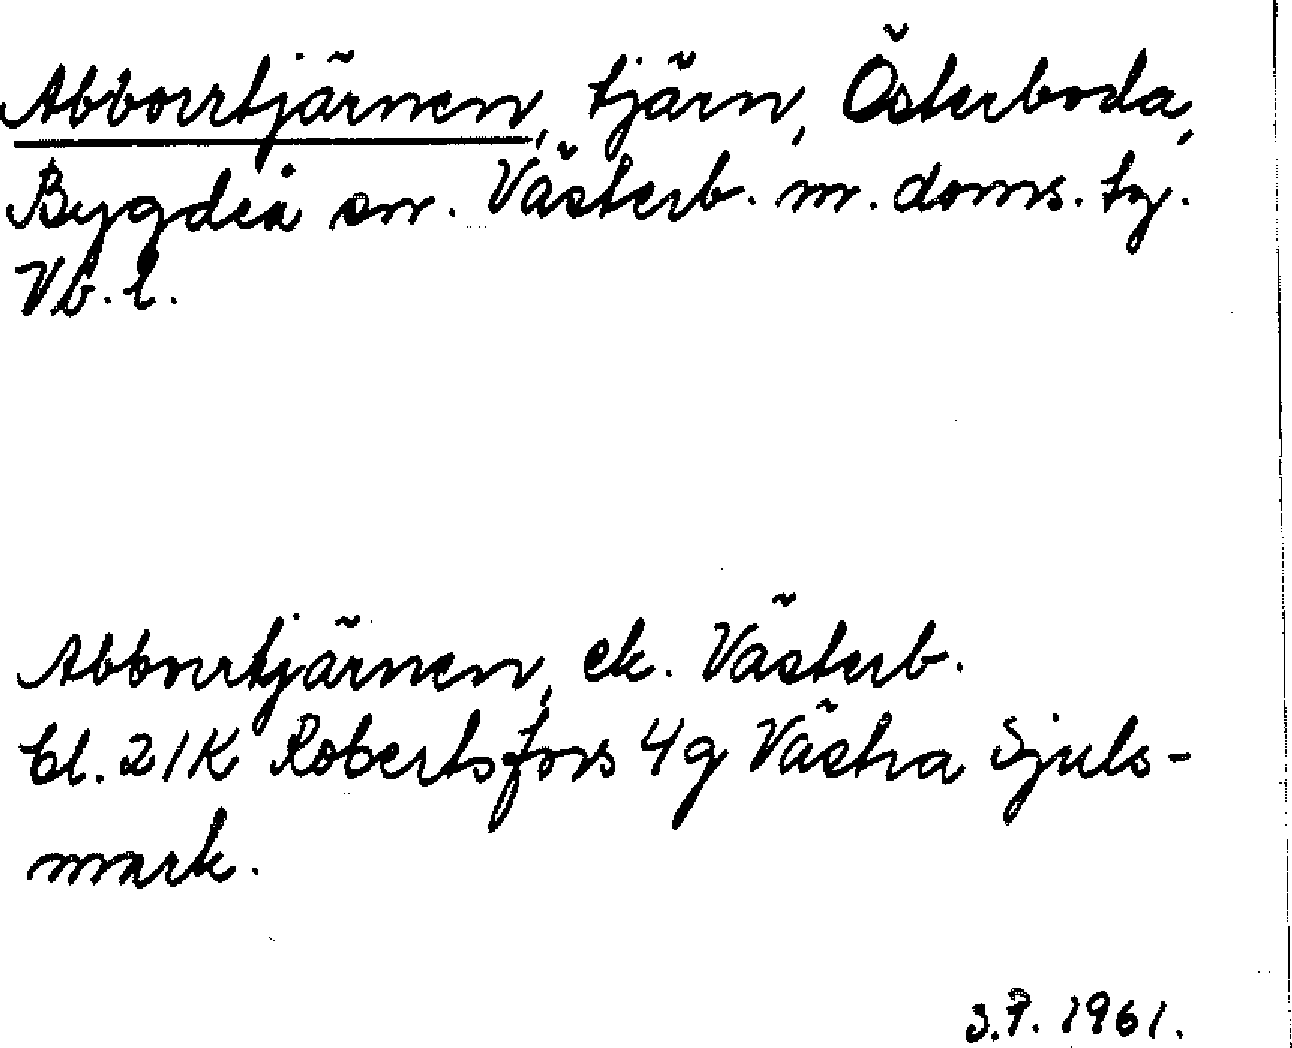 Abborrtjärnen, tjärn, Österboda,
Bygdeå sn. Västerb. m. doms. tg.
Vb. l.
Abborrtjärnen, ek. Västerb.
bl. 21K Robertsfors 4g Västra Sjuls-
mark.
S.P. 1961.